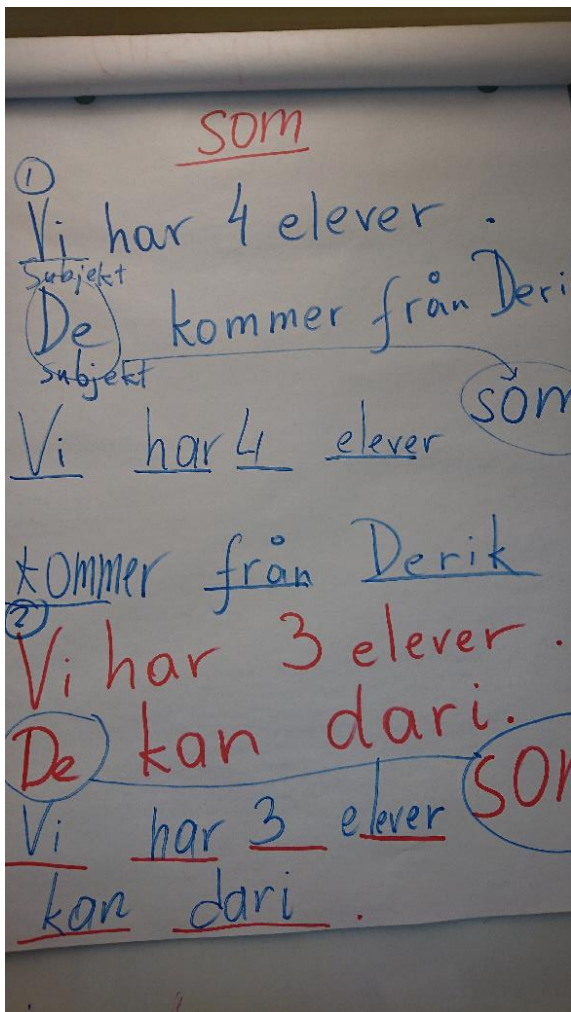 som
①
Vi har 4 elever .
Subjekt
De kommer från Deri
Subjekt
Vi har 4 elever som
kommer från Derik
②
Vi har 3 elever .
De kan dari.
Vi har 3 elever som
kan dari .